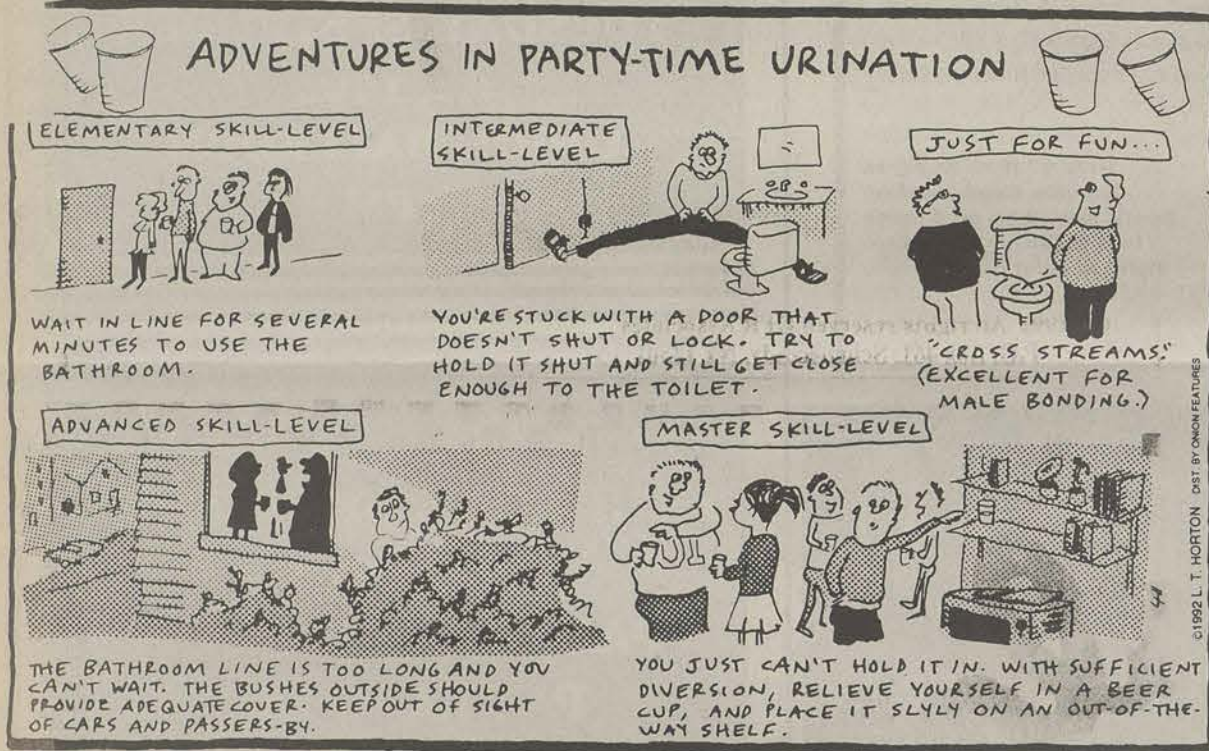 ADVENTURES IN PARTY-TIME URINATION
ELEMENTARY SKILL-LEVEL
WAIT IN LINE FOR SEVERAL
MINUTES TO USE THE
BATHROOM.
INTERMEDIATE
SKILL-LEVEL
YOU'RE STUCK WITH A DOOR THAT
DOESN'T SHUT OR LOCK. TRY TO
HOLD IT SHUT AND STILL GET CLOSE
ENOUGH TO THE TOILET.
JUST FOR FUN...
"CROSS STREAMS."
(EXCELLENT FOR
MALE BONDING.)
ADVANCED SKILL-LEVEL
THE BATHROOM LINE IS TOO LONG AND YOU
CAN'T WAIT. THE BUSHES OUTSIDE SHOULD
PROVIDE ADEQUATE COVER. KEEP OUT OF SIGHT
OF CARS AND PASSERS-BY.
MASTER SKILL-LEVEL
YOU JUST CAN'T HOLD IT IN. WITH SUFFICIENT
DIVERSION, RELIEVE YOURSELF IN A BEER
CUP, AND PLACE IT SLYLY ON AN OUT-OF-THE-
WAY SHELF.
©1992 L. T. HORTON DIST. BY ONION FEATURES